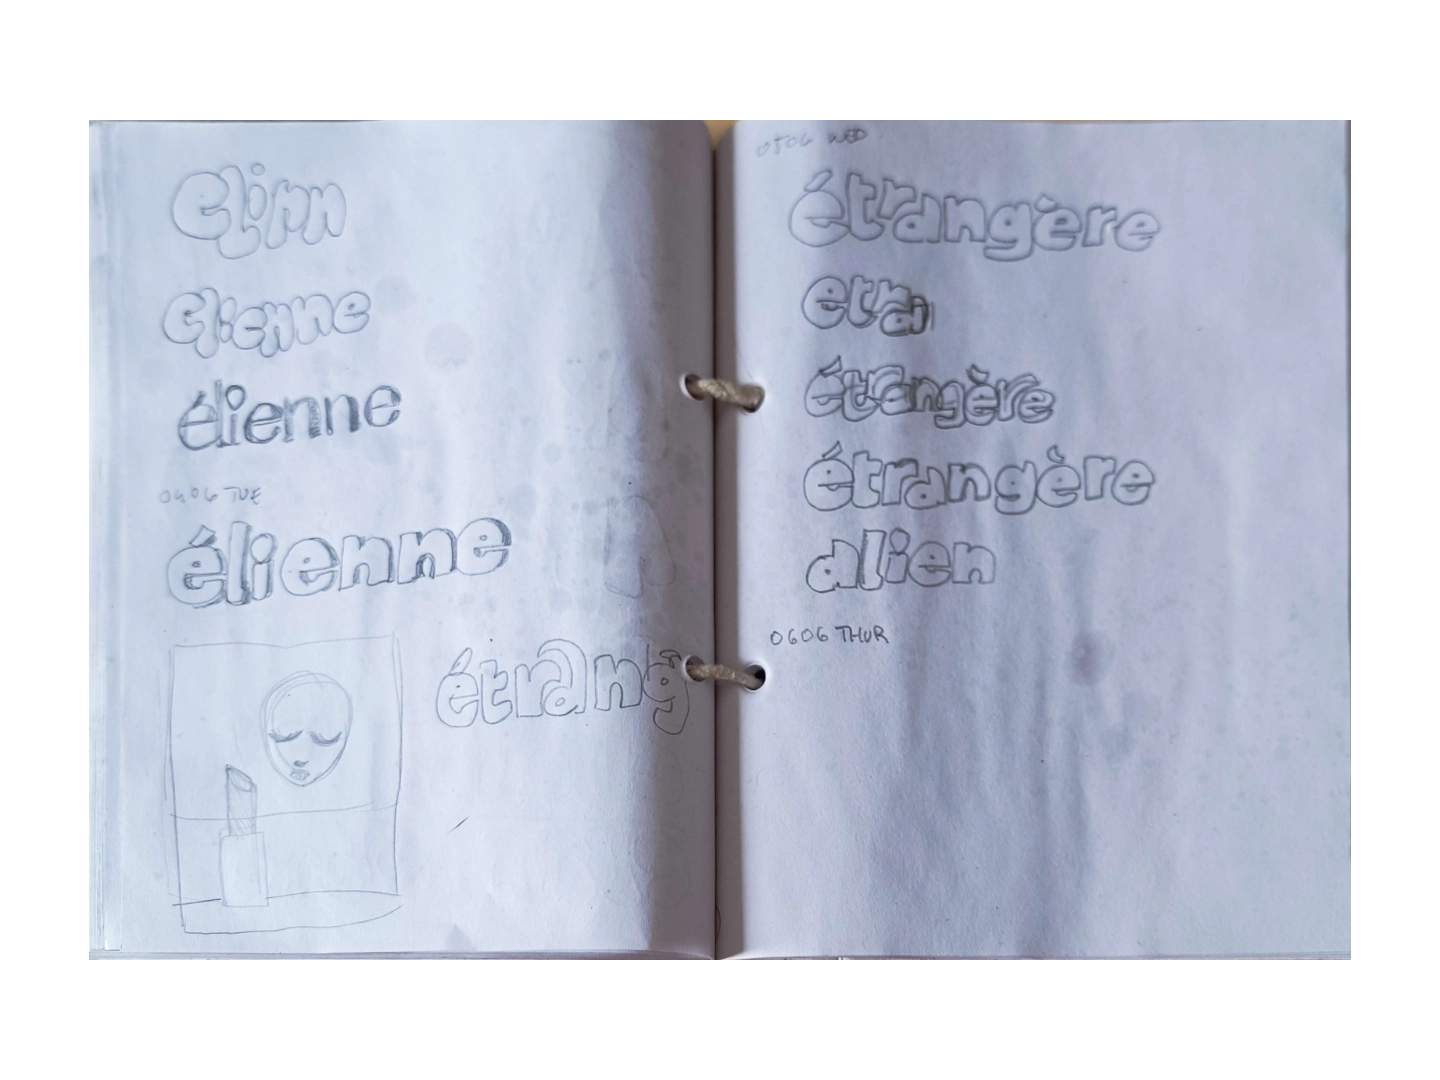 elinn
elienne
élienne
0406 TUE
élienne
étrang
0506 WED
étrangère
etra
étrangère
étrangère
alien
0606 THUR